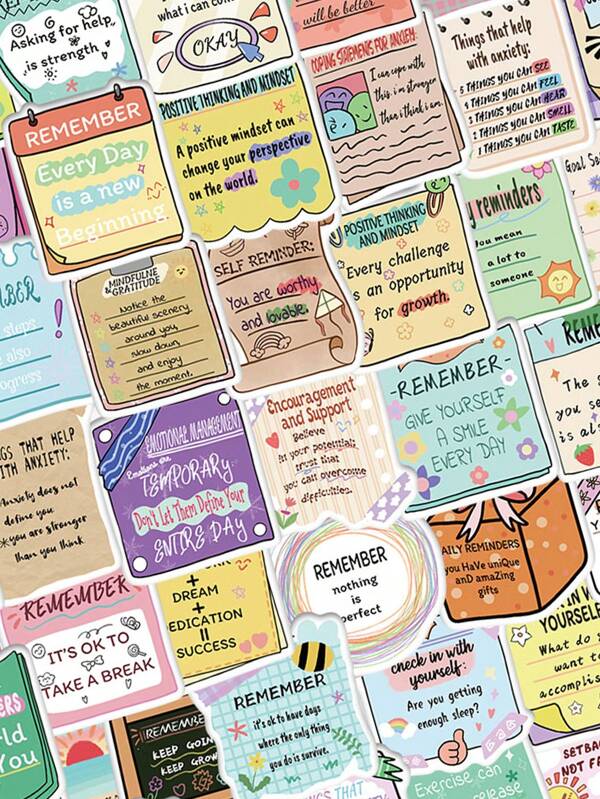 Asking for help
is strength
what i can con
OKAY
will be better
COPING STATEMENTS FOR ANXIETY:
I can cope with
this i'm stronger
than i think i am.
Things that help
with anxiety:
5 THINGS YOU CAN SEE
4 THINGS YOU CAN FEEL
3 THINGS YOU CAN HEAR
2 THINGS YOU CAN SMELL
1 THINGS YOU CAN TASTE
REMEMBER
Every Day
is a new
Beginning
POSITIVE THINKING AND MINDSET
A positive mindset can
change your perspective
on the world.
POSITIVE THINKING
AND MINDSET
Every challenge
is an opportunity
for growth.
y reminders
You mean
a lot to
someone
Goal Se
MBER
steps
e also
ogress
MINDFULNE
GRATITUDE
Notice the
beautiful scenery
around you,
slow down,
and enjoy
the moment.
SELF REMINDER:
You are worthy
and lovable.
-REMEMBER-
GIVE YOURSELF
A SMILE
EVERY DAY
REME
The s
you se
is al
GS THAT HELP
ITH ANXIETY:
Anxiety does not
define you.
you are stronger
than you think
EMOTIONAL MANAGEMENT
Emotions are
TEMPORARY
Don't Let Them Define Your
ENTIRE DAY
Encouragement
and Support
Believe
in your potential;
trust that
you can overcome
difficulties.
REMEMBER
nothing
is
perfect
AILY REMINDERS
you HaVe uniQue
anD amaZing
gifts
REMEMBER
IT'S OK TO
TAKE A BREAK
+
DREAM
+
EDICATION
=
SUCCESS
REMEMBER
it's ok to have days
where the only thing
you do is survive.
check in with
yourself:
Are you getting
enough sleep?
IN W
YOURSELF
What do y
want to
accomplis
ERS
ld
You
REMEMBE
KEEP GOIN
KEEP GROW
NGS THAT
Exercise can
release
SETBA
NOT FA